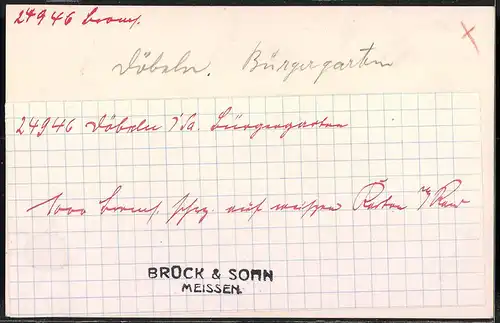 24946 brom.
Döbeln. Bürgergarten
24946 Döbeln i/Sa. Bürgergarten
1000 brom. schw. auf weißem Karton
BRÜCK & SOHN
MEISSEN.